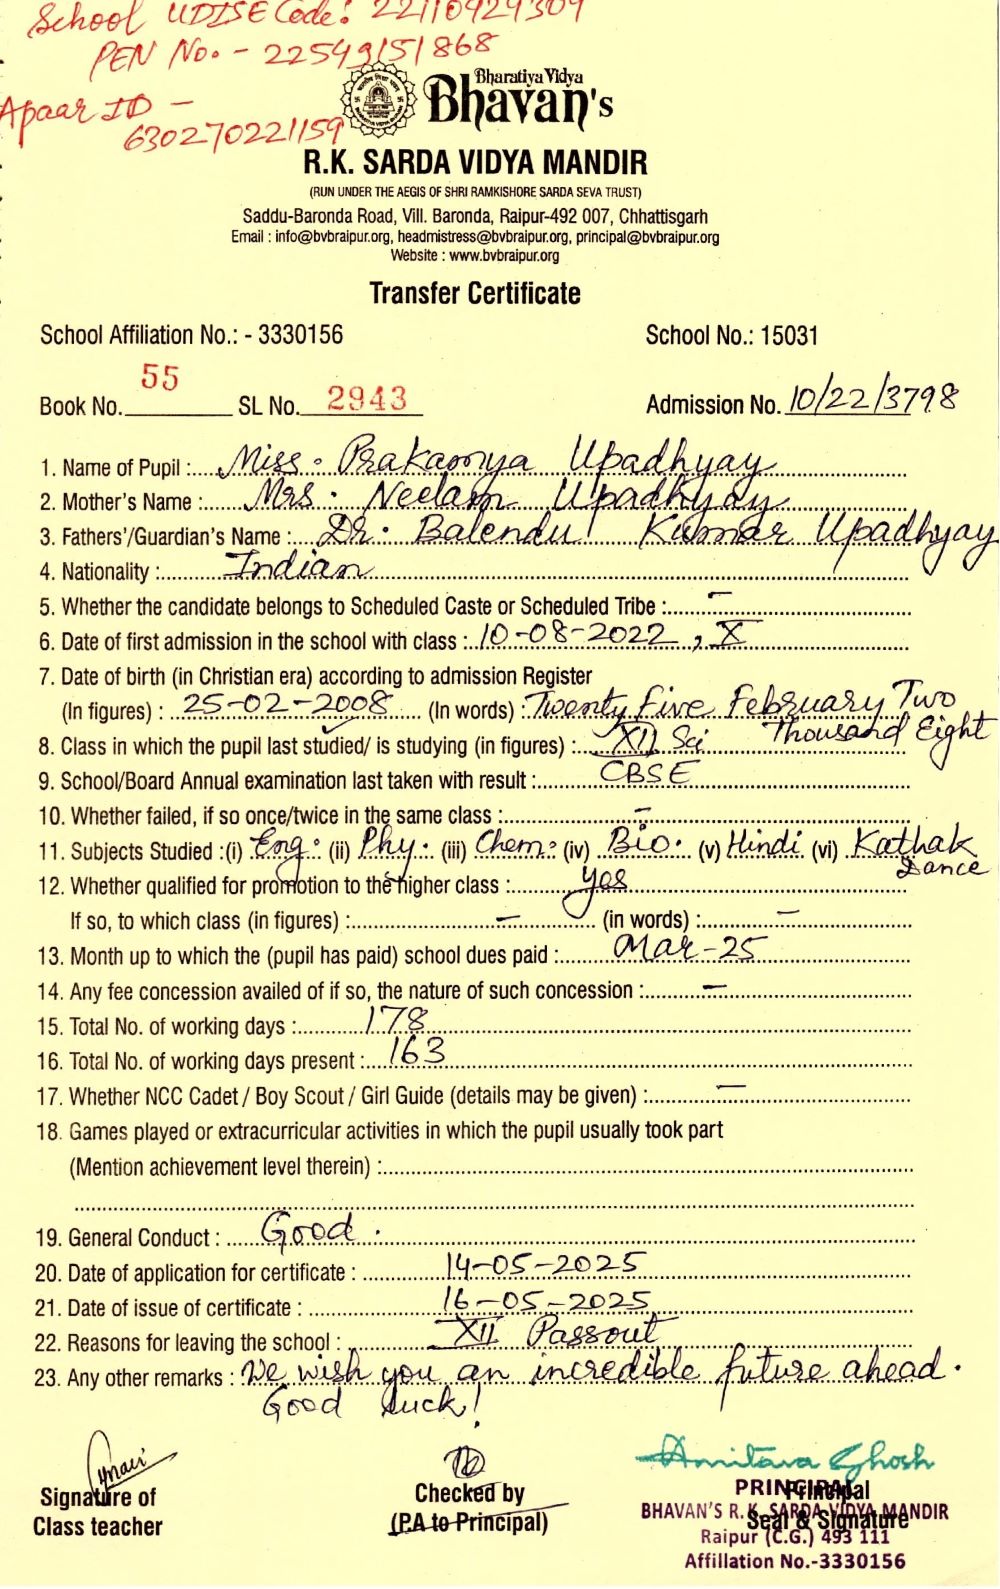 School UDISE Code: 22110924309
PEN No. - 22549151868
Apaar ID -
630270221159
Bharatiya Vidya
Bhavan's
R.K. SARDA VIDYA MANDIR
(RUN UNDER THE AEGIS OF SHRI RAMKISHORE SARDA SEVA TRUST)
Saddu-Baronda Road, Vill. Baronda, Raipur-492 007, Chhattisgarh
Email : info@bvbraipur.org, headmistress@bvbraipur.org, principal@bvbraipur.org
Website : www.bvbraipur.org
Transfer Certificate
School Affiliation No.: - 3330156 School No.: 15031
Book No. 55 SL No. 2943 Admission No. 10/22/3798
1. Name of Pupil : Miss. Prakamya Upadhyay
2. Mother's Name : Mrs. Neelam Upadhyay
3. Fathers'/Guardian's Name : Dr. Balendu Kumar Upadhyay
4. Nationality : Indian
5. Whether the candidate belongs to Scheduled Caste or Scheduled Tribe : -
6. Date of first admission in the school with class : 10-08-2022, X
7. Date of birth (in Christian era) according to admission Register
(In figures) : 25-02-2008 (In words) : Twenty Five February Two
Thousand Eight
8. Class in which the pupil last studied/ is studying (in figures) : XII Sci
9. School/Board Annual examination last taken with result : CBSE
10. Whether failed, if so once/twice in the same class : -
11. Subjects Studied :(i) Eng. (ii) Phy. (iii) Chem. (iv) Bio. (v) Hindi (vi) Kathak
Dance
12. Whether qualified for promotion to the higher class : yes
If so, to which class (in figures) : - (in words) : -
13. Month up to which the (pupil has paid) school dues paid : Mar-25
14. Any fee concession availed of if so, the nature of such concession : -
15. Total No. of working days : 178
16. Total No. of working days present : 163
17. Whether NCC Cadet / Boy Scout / Girl Guide (details may be given) : -
18. Games played or extracurricular activities in which the pupil usually took part
(Mention achievement level therein) :
19. General Conduct : Good.
20. Date of application for certificate : 14-05-2025
21. Date of issue of certificate : 16-05-2025
22. Reasons for leaving the school : XII Passout
23. Any other remarks : We wish you an incredible future ahead.
Good luck!
Amitava Ghosh
Signature of Checked by PRINCIPAL Principal
Class teacher (P.A to Principal) BHAVAN'S R.K. SARDA VIDYA MANDIR Seal & Signature
Raipur (C.G.) 493 111
Affiliation No.-3330156